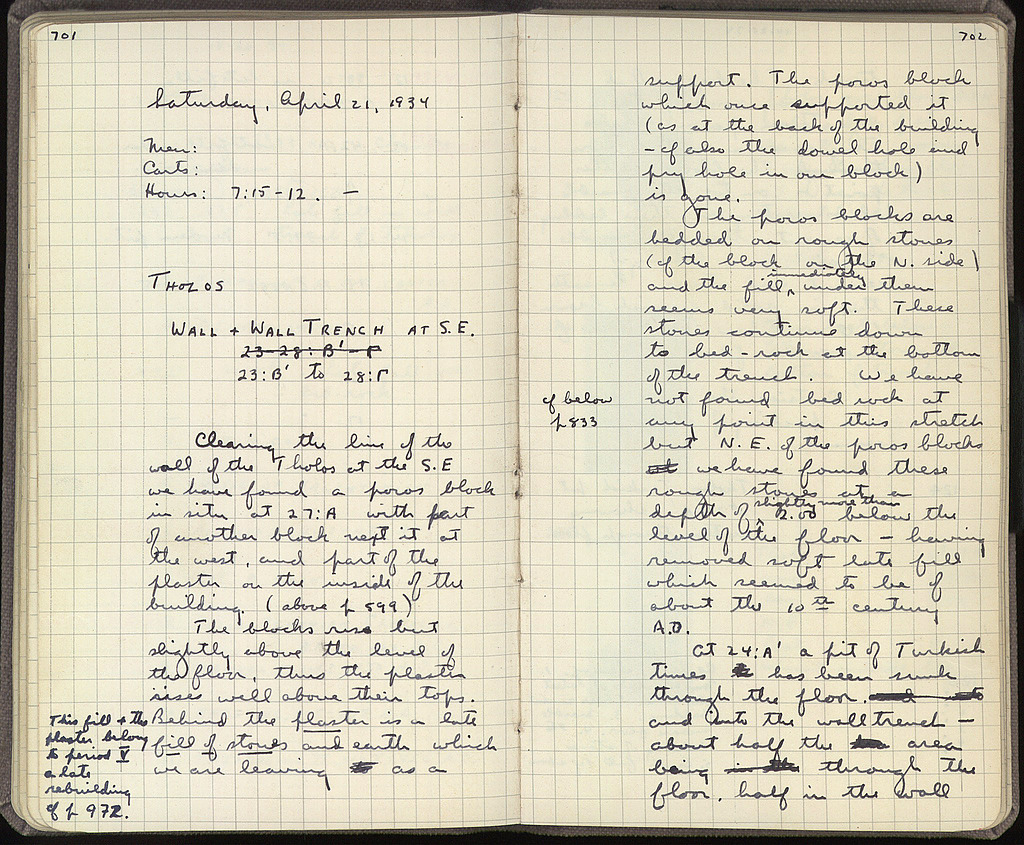 701
Saturday, April 21, 1934
Men:
Carts:
Hours: 7:15-12. —
THOLOS
WALL + WALL TRENCH AT S.E.
23-28: B' - Γ
23:B' to 28:Γ
Clearing the line of the
wall of the Tholos at the S.E
we have found a poros block
in situ at 27:A with part
of another block next it at
the west, and part of the
plaster on the inside of the
building. (above p 599)
The blocks rise but
slightly above the level of
the floor, thus the plaster
rises well above their tops.
Behind the plaster is a late
fill of stones and earth which
we are leaving as a
This fill + the
plaster belong
to period V
a late
rebuilding
cf p 972.
702
support. The poros block
which once supported it
(as at the back of the building
- cf also the dowel hole and
pry hole in our block)
is gone.
The poros blocks are
bedded on rough stones
(cf the block on the N. side)
and the fill immediately under them
seems very soft. These
stones continue down
to bed-rock at the bottom
of the trench. We have
not found bed rock at
any point in this stretch
but N.E. of the poros blocks
at we have found these
rough stones at a
depth of slightly more than 2.00 below the
level of the floor — having
removed soft late fill
which seemed to be of
about the 10th century
A.D.
At 24:A' a pit of Turkish
times has been sunk
through the floor
and into the wall trench —
about half the area
being in the through the
floor, half in the wall
cf below
p 833